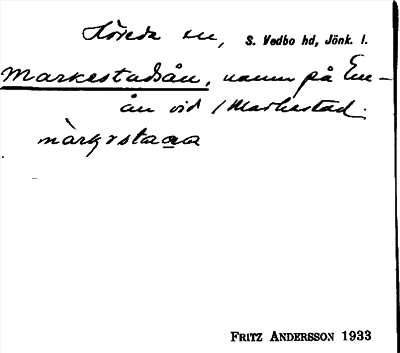 Höreda sn, S. Vedbo hd, Jönk. l.
Markestadsån, namn på Em-
ån vid / Markestad.
FRITZ ANDERSSON 1933